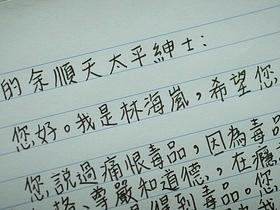 的余順天太平紳士：
您好。我是林海嵐，希望您
您說過痛恨毒品，因為毒品
格、尊嚴和道德，在癮
得到毒品。您